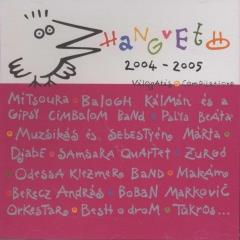 HaNGVETŐ
2004 - 2005
Válogatás • Compilations
Mitsoura • Balogh Kálmán és a
Gipsy Cimbalom Band • Palya Beáta
• Muzsikás és Sebestyén Márta •
Djabe • Samsara Quartet • Zuroб
• Odessa Klezmer Band • Makám •
Berecz András • Boban Markovic
Orkestar • Besh o droM • Tükrös...